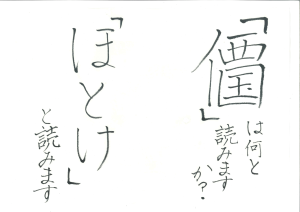 「」
は何と
読みます
か?
「ほとけ」
と読みます